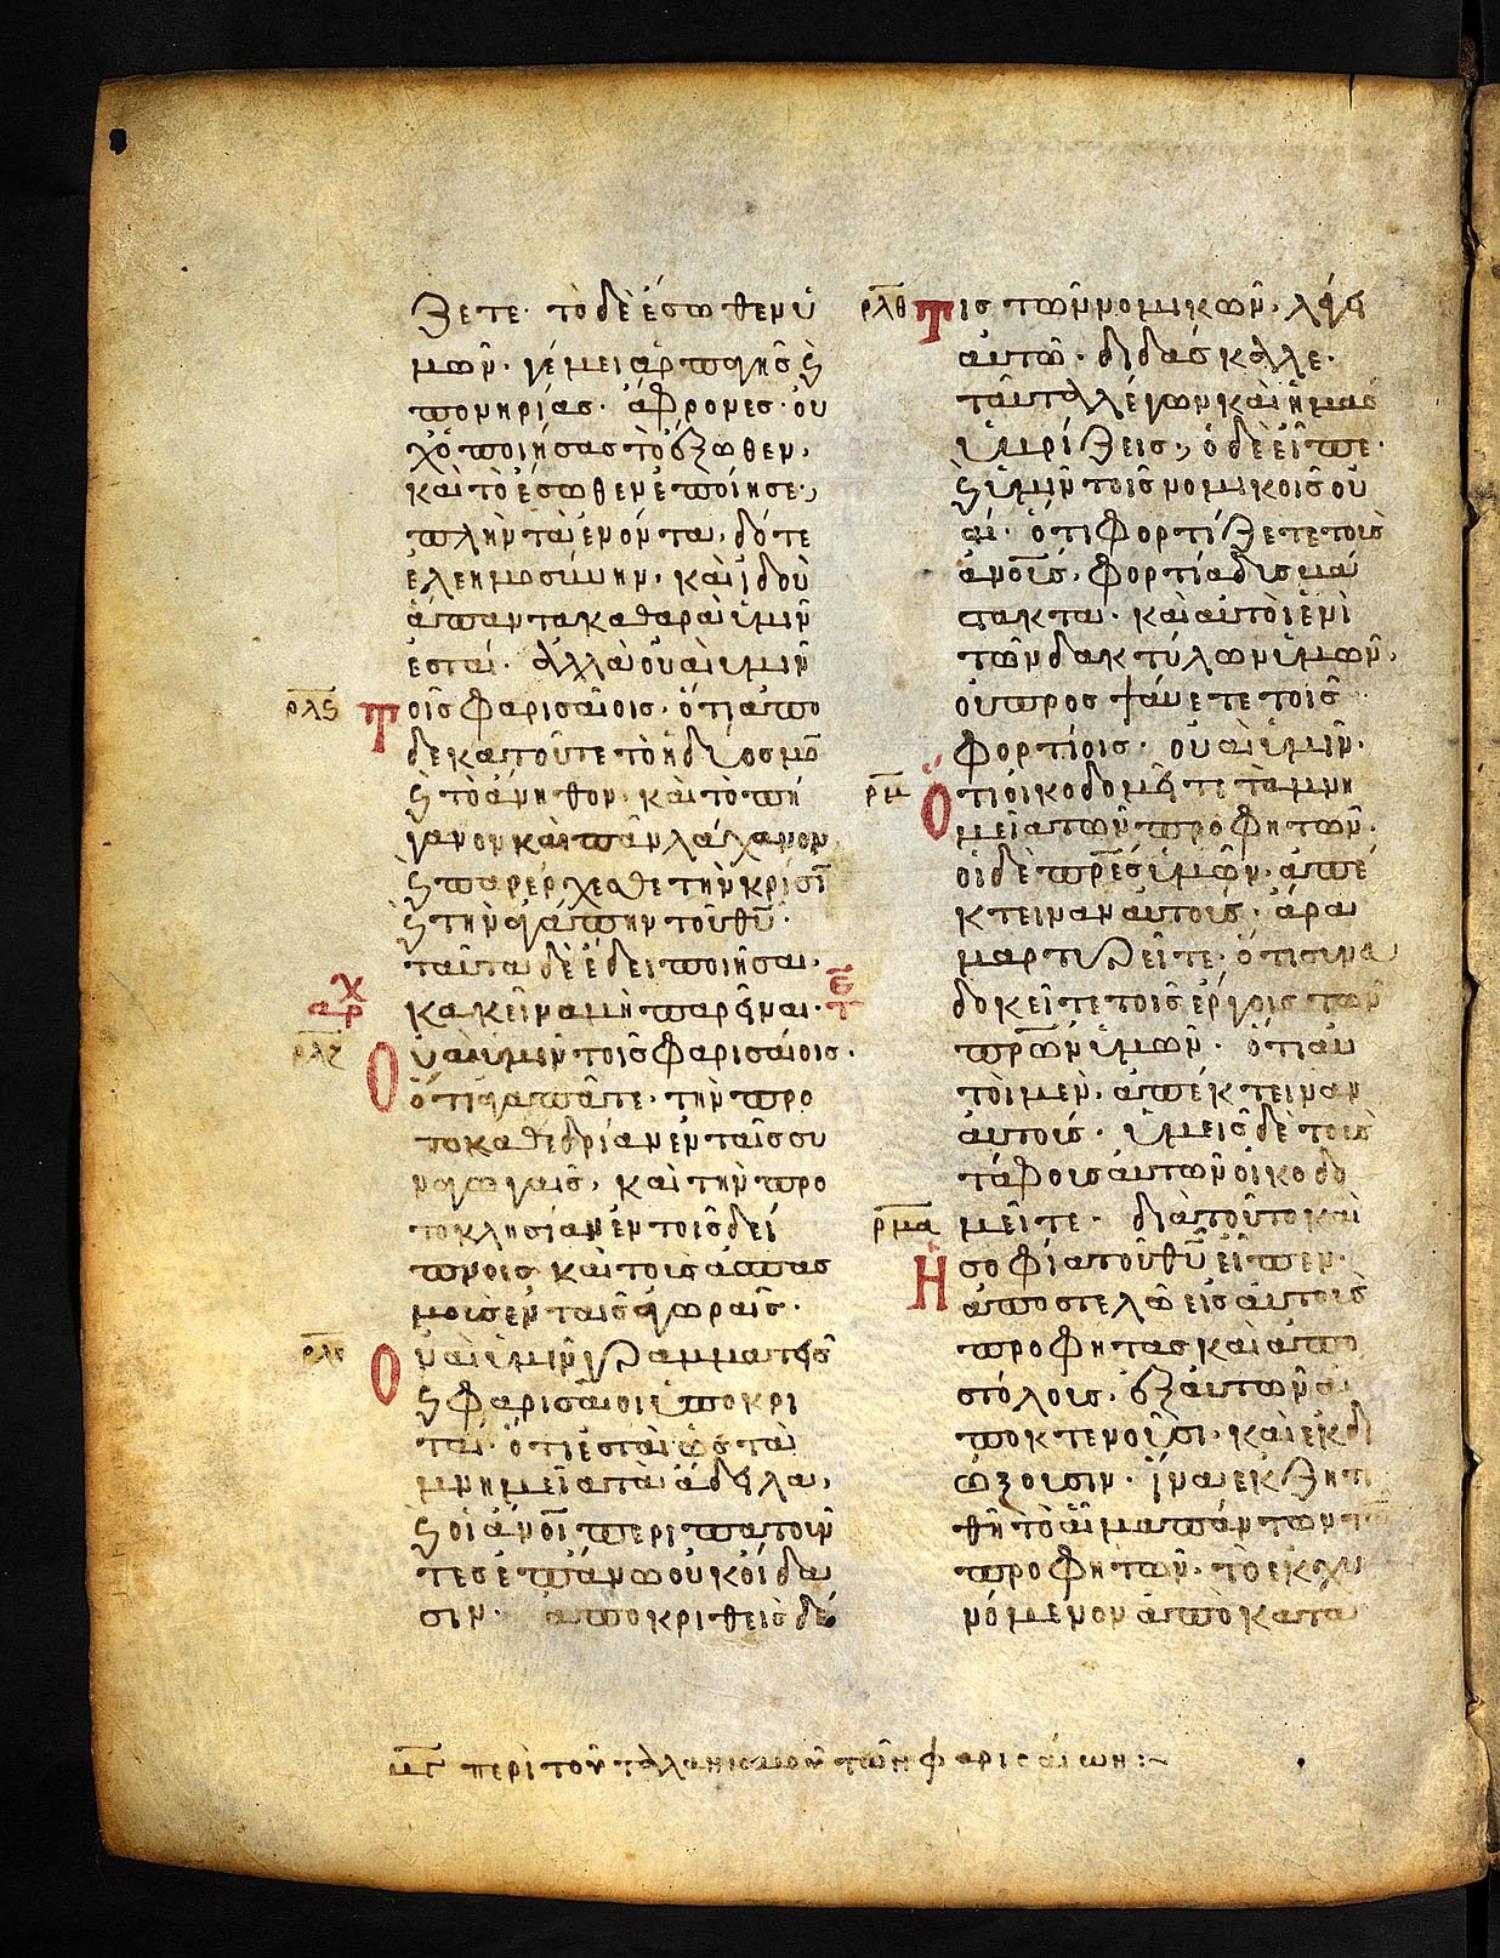 ζετε· τὸ δὲ ἔσωθεν ὑ
μῶν· γέμει ἁρπαγῆς ϗ
πονηρίας· ἄφρονες· οὐ
χ ὁ ποιήσας τὸ ἔξωθεν,
καὶ τὸ ἔσωθεν ἐποίησε·,
πλὴν τὰ ἐνόντα, δότε
ἐλεημοσύνην, καὶ ἰδοὺ
ἅπαντα καθαρὰ ὑμῖν
ἔσται· ἀλλὰ οὐαὶ ὑμῖν
ρλϛ Τοῖς φαρισαίοις· ὅτι ἀπο
δεκατοῦτε τὸ ἡδύοσμο̅
ϗ τὸ ἄνηθον· καὶ τὸ πή
γανον καὶ πᾶν λάχανον
ϗ παρέρχεσθε τὴν κρίσι̅
ϗ τὴν ἀγάπην τοῦ θυ̅·
ταῦτα δὲ ἔδει ποιῆσαι,
αρχ κακεῖνα μὴ παρεῖναι·
ρλζ Οὐαὶ ὑμῖν τοῖς φαρισαίοις·
ὅτι ἀγαπᾶτε· τὴν προ
τοκαθεδρίαν ἐν ταῖς συ
ναγωγαῖς, καὶ τὴν προ
τοκλησίαν ἐν τοῖς δεί
πνοις καὶ τοὺς ἀσπας
μοὺς ἐν ταῖς ἀγωραῖς·
ρλη Οὐαὶ ὑμῖν γραμματεῖς
ϗ φαρισαῖοι ὑποκρι
ταί· ὅτι ἐσταὶ ὡς τὰ
μνημεῖα τὰ ἄδηλα,
ϗ οἱ ἄνο̅ι περιπατοῦν
τες ἐπάνω οὐκ οἴδα
σιν· ἀποκριθεὶς δέ
ρλθ Τις τῶν νομικῶν, λέγει
αὐτῶ· διδάσκαλλε·
ταῦτα λλέγων καὶ ἡμας
ὑμρίζεις·, ὁ δὲ εἶπε·
ϗ ὑμῖν τοῖς νομικοῖς οὐ
αί· ὅτι φορτίζετε τοὺς
ἀνο̅υς, φορτία δυσμά
στακτα· καὶ αὐτοὶ ἑνὶ
τῶν δακτύλων ὑμῶν,
οὐ προσψάυετε τοῖς
φορτίοις· οὐαὶ ὑμῖν·
ρμ Ὅτι οἰκοδομεῖτε τὰ μνη
μεῖα τῶν προφητῶν·
οἱ δὲ πρ̅ες ὑμῶν· ἀπέ
κτειναν αὐτούς· ἄρα
μαρτυρεῖτε· ὅτι συνα
δοκεῖτε τοῖς ἔργοις τῶν
πρ̅ων ὑμῶν· ὅτι αὐ
τοὶ μεν, ἀπέκτειναν
αὐτούς· ὑμεῖς δὲ τοὺς
τάφους αὐτῶν οἰκοδο
ρμα μεῖτε· διὰ τοῦτο καὶ
Ἡ σοφία τοῦ θυ̅ εἶπεν·
ἀποστελῶ εἰς αὐτοὺς
προφήτας καὶ ἀπο
στόλους, ἐξ αὐτῶν ἀ
ποκτενοῦσι· καὶ ἐκδι
ώξουσιν· ἵνα ἐκζητη
θῆ τὸ αἷμα πάντων τῶ̅
προφητῶν· τὸ ἐκχυ
νόμενον ἀπὸ κατα
μγ περὶ τοῦ ταλανισμοῦ τῶν φαρισαίων:~